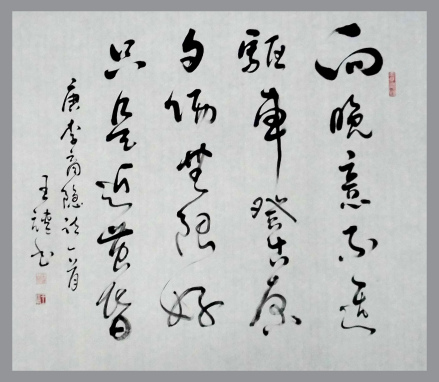 向晚意不适
驱车登古原
夕阳无限好
只是近黄昏
唐李商隐诗一首
王 书